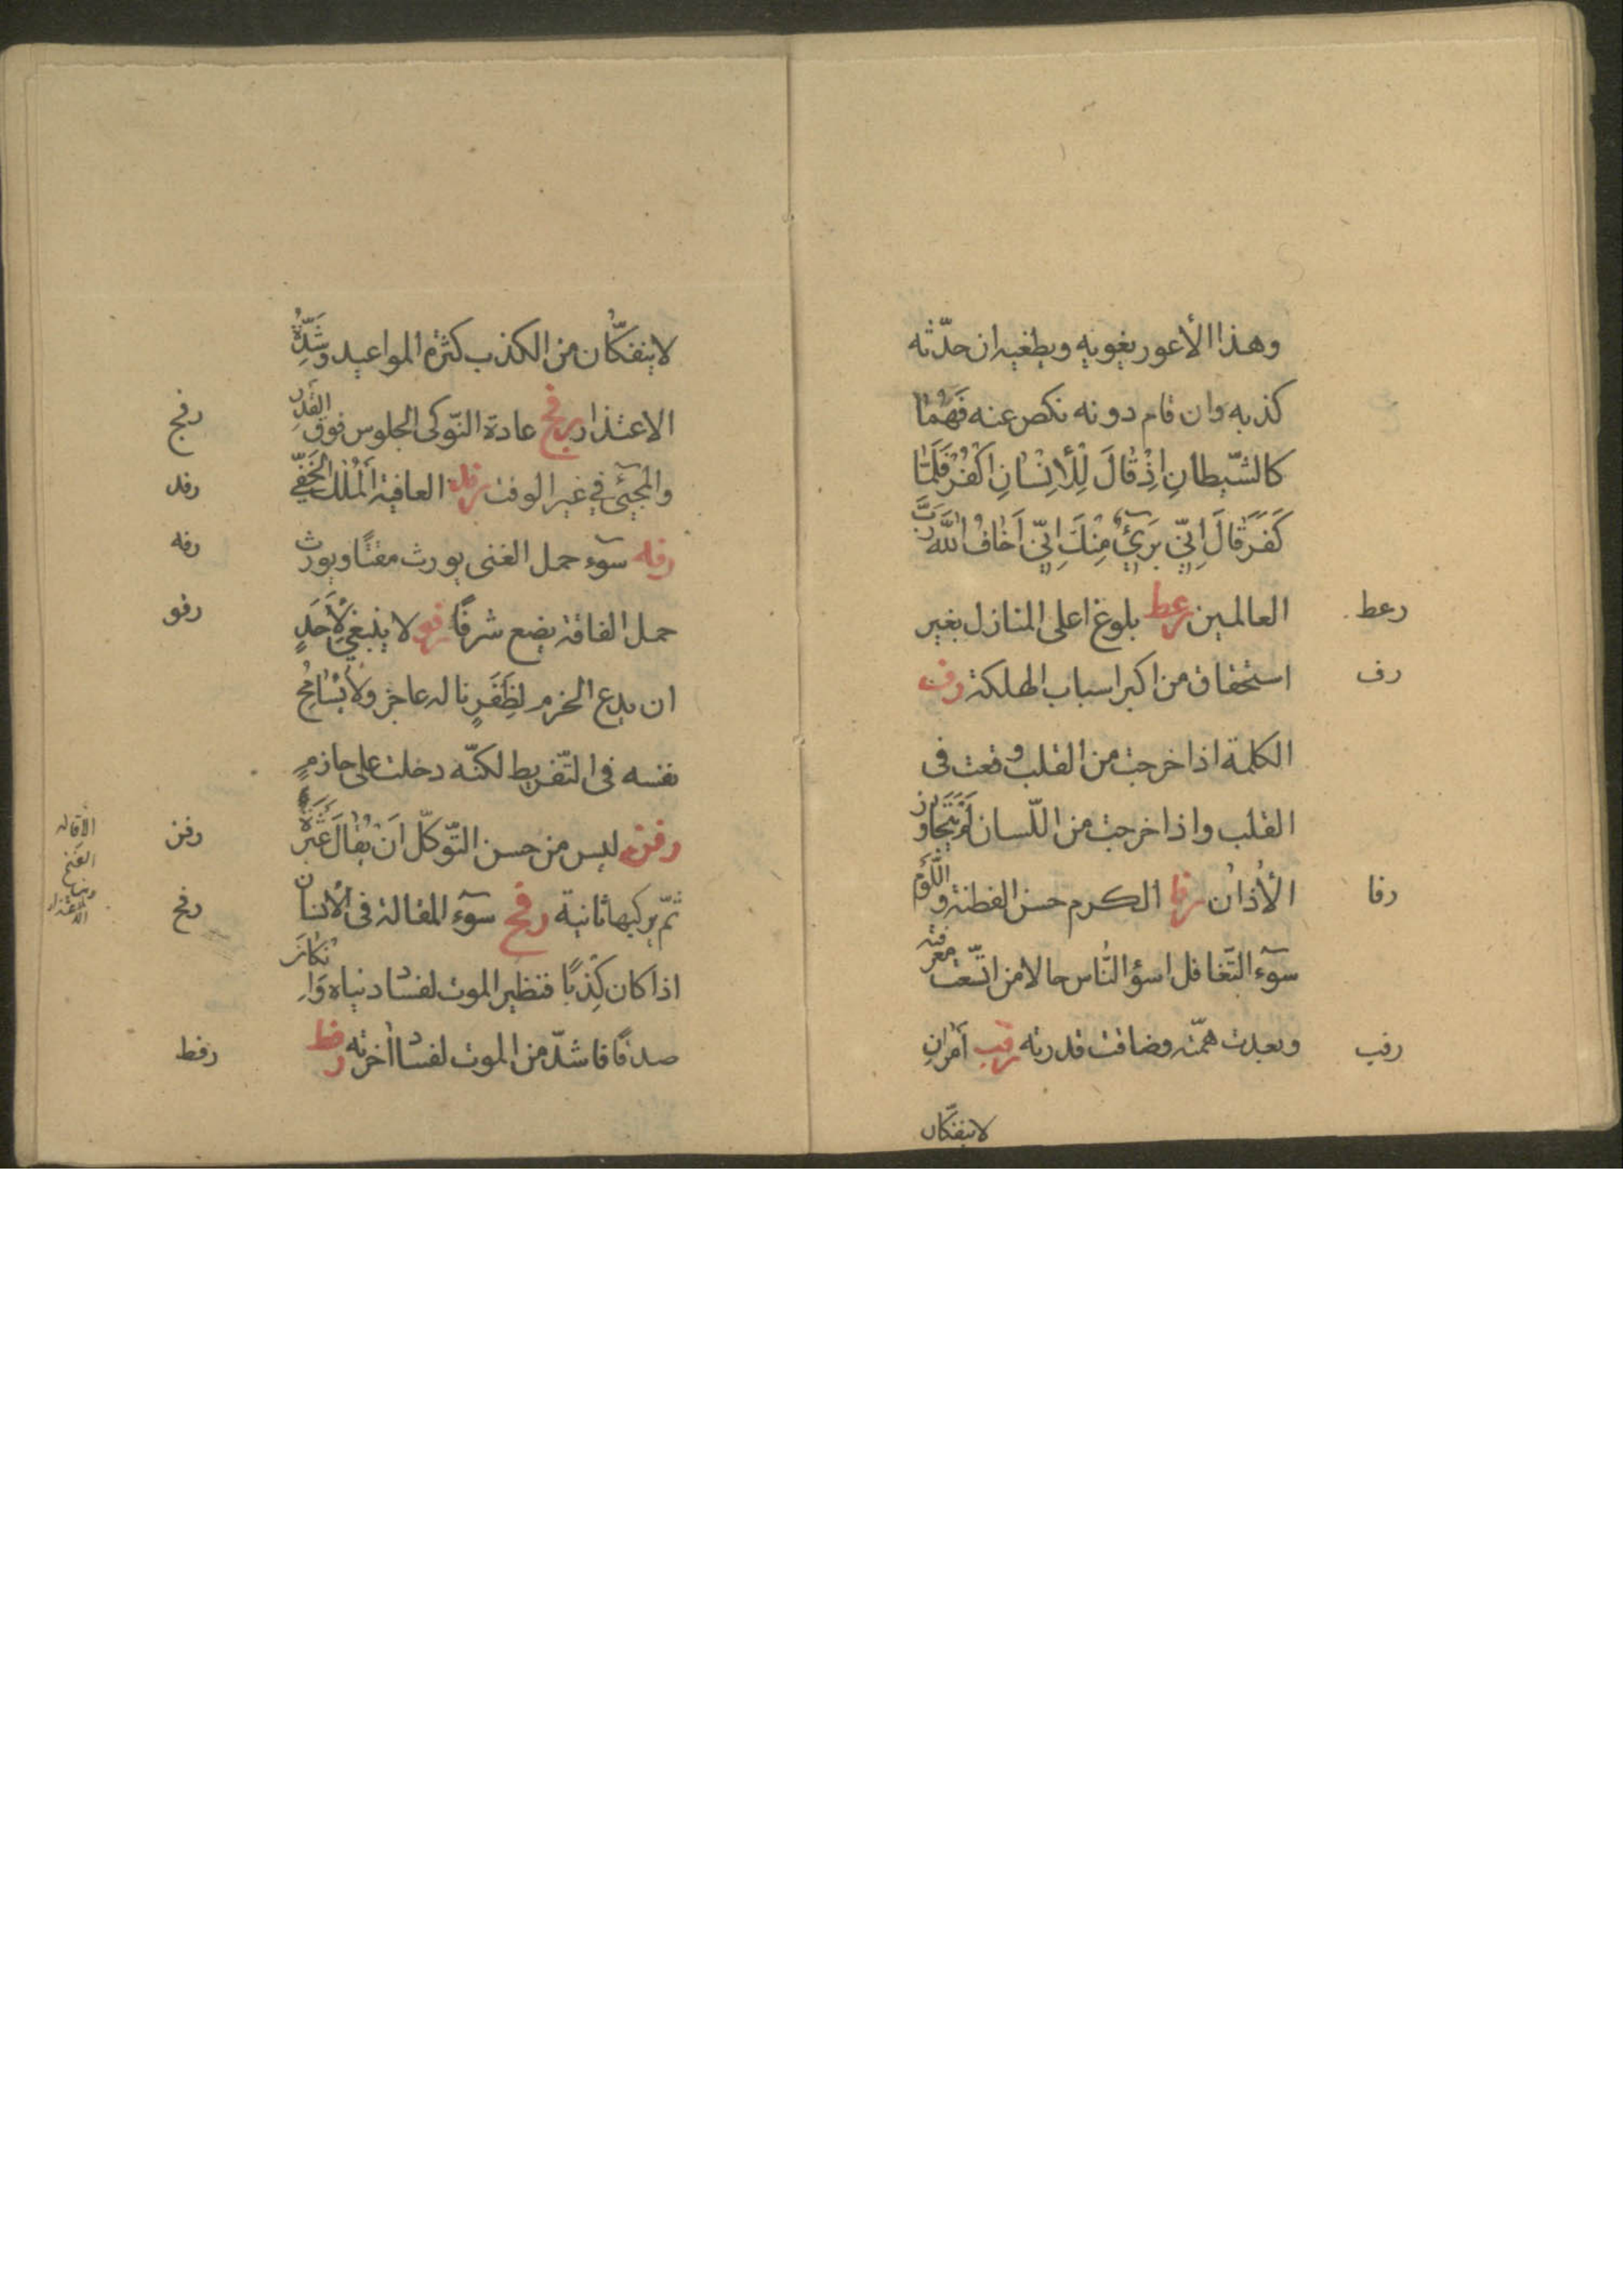 وهذا الأعور يغويه ويطغيه ان حدّثه
كذبه وان قام دونه نكص عنه فَهُمٰا
كالشّيطانِ اِذْ قٰالَ لِلْأِنْسٰانِ اكْفُرْ فَلَمّٰا
كَفَرَ قٰالَ اِنّي بَرَيٓئٌ مِنْكَ اِنّي اَخٰافُ اللّٰهَ رَبَّ
رعط
العالمين رعط بلوغ اعلى المنازل بغير
رف
استحقاق من اكبر اسباب الهلكة رف
الكلمة اذا خرجت من القلب وقعت فى
القلب واذا خرجت من اللّسان لَمْ يَتَجاوز
رفا
الأذان رفا الكرم حسن الفطنة واللّؤم
سوٓء التّغافل اسؤ النّاس حالا من اتّسعت معرفته
رفب
وبعدت همّته وضاقت قدرته رفب أمران
لاينفكّان
لاينفكّان من الكذب كثرة المواعيد وشدّةُ
رفج
الاعتذار رفج عادة النّوكى الجلوس فوق القدر
رفد
والمجيئ في غير الوقت رفد العافية الْمُلْك الخَفّي
رفه
رفه سوٓء حمل الغنى يورث مقتًا ويورث
رفو
سوء حمل الفاقة يضع شرفًا رفو لا ينبغي لأحَدٍ
ان يدع الحزم لظَفَرٍ ناله عاجز ولا يُسٰامِحُ
نفسه فى التّفريط لنكبة دخلت على حازمٍ
رفز
رفز ليس من حسن التّوكّل اَنْ يُقٰالَ عَثْرَةٌ
رفح
ثمّ يركبها ثانية رفح سوٓء المقالة فى الأنسان
اذا كان كِذْبًا فنظير الموت لفساد دنياه وَاِنْ كٰانَ
رفط
صدقًا فاشدّ من الموت لفساد اٰخرته رفط
الأقاله